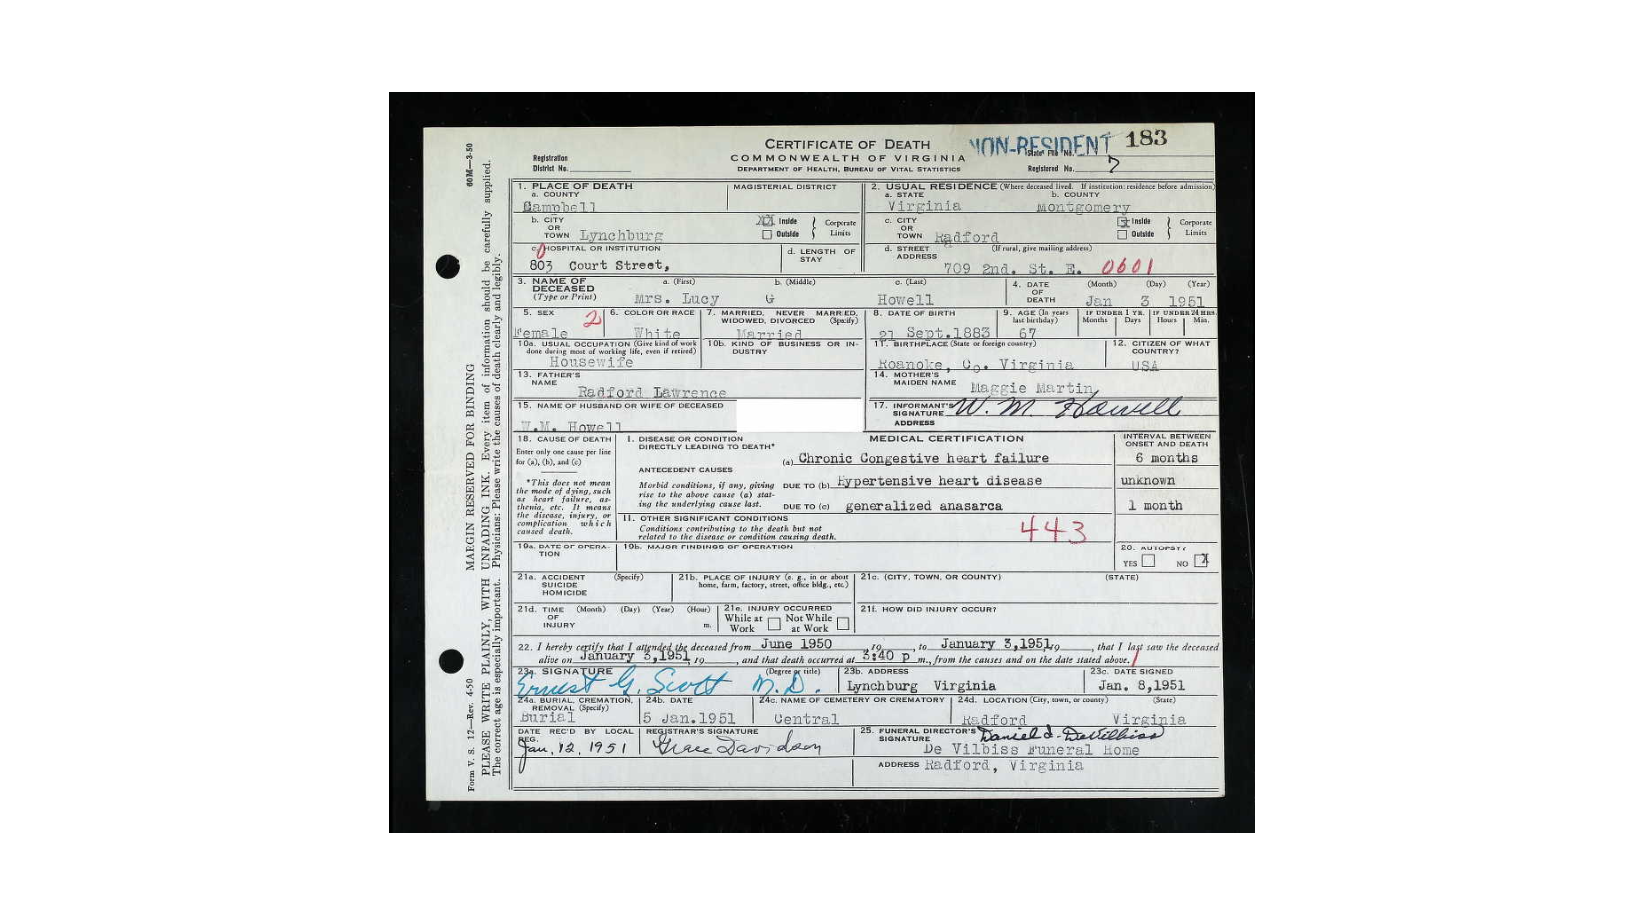 60M—3-50
MARGIN RESERVED FOR BINDING
PLEASE WRITE PLAINLY, WITH UNFADING INK. Every item of information should be carefully supplied.
The correct age is especially important. Physicians: Please write the causes of death clearly and legibly.
Form V. S. 12—Rev. 4-50
CERTIFICATE OF DEATH
COMMONWEALTH OF VIRGINIA
DEPARTMENT OF HEALTH, BUREAU OF VITAL STATISTICS
NON-RESIDENT 183
Registration District No.
State File No.
Registered No. 7
1. PLACE OF DEATH
a. COUNTY
Campbell
MAGISTERIAL DISTRICT
2. USUAL RESIDENCE (Where deceased lived. If institution: residence before admission)
a. STATE b. COUNTY
Virginia Montgomery
b. CITY OR TOWN Lynchburg
XX Inside Outside Corporate Limits
c. CITY OR TOWN Radford
Inside Outside Corporate Limits
c. HOSPITAL OR INSTITUTION
803 Court Street,
d. LENGTH OF STAY
d. STREET ADDRESS (If rural, give mailing address)
709 2nd. St. E. 0601
3. NAME OF DECEASED (Type or Print)
a. (First) b. (Middle) c. (Last)
Mrs. Lucy G Howell
4. DATE OF DEATH (Month) (Day) (Year)
Jan 3 1951
5. SEX 2
Female
6. COLOR OR RACE
White
7. MARRIED, NEVER MARRIED, WIDOWED, DIVORCED (Specify)
Married
8. DATE OF BIRTH
21 Sept.1883
9. AGE (In years last birthday)
67
IF UNDER 1 YR. Months Days
IF UNDER 24 HRS. Hours Min.
10a. USUAL OCCUPATION (Give kind of work done during most of working life, even if retired)
Housewife
10b. KIND OF BUSINESS OR INDUSTRY
11. BIRTHPLACE (State or foreign country)
Roanoke, Co. Virginia
12. CITIZEN OF WHAT COUNTRY?
USA
13. FATHER'S NAME
Radford Lawrence
14. MOTHER'S MAIDEN NAME Maggie Martin
15. NAME OF HUSBAND OR WIFE OF DECEASED
W.M. Howell
17. INFORMANT'S SIGNATURE W. M. Howell
ADDRESS
18. CAUSE OF DEATH
Enter only one cause per line for (a), (b), and (c)
*This does not mean the mode of dying, such as heart failure, asthenia, etc. It means the disease, injury, or complication which caused death.
MEDICAL CERTIFICATION
INTERVAL BETWEEN ONSET AND DEATH
I. DISEASE OR CONDITION DIRECTLY LEADING TO DEATH*
(a) Chronic Congestive heart failure 6 months
ANTECEDENT CAUSES
Morbid conditions, if any, giving rise to the above cause (a) stating the underlying cause last.
DUE TO (b) Hypertensive heart disease unknown
DUE TO (c) generalized anasarca 1 month
II. OTHER SIGNIFICANT CONDITIONS
Conditions contributing to the death but not related to the disease or condition causing death.
443
19a. DATE OF OPERATION
19b. MAJOR FINDINGS OF OPERATION
20. AUTOPSY?
YES NO X
21a. ACCIDENT SUICIDE HOMICIDE (Specify)
21b. PLACE OF INJURY (e. g., in or about home, farm, factory, street, office bldg., etc.)
21c. (CITY, TOWN, OR COUNTY) (STATE)
21d. TIME OF INJURY (Month) (Day) (Year) (Hour) m.
21e. INJURY OCCURRED
While at Work Not While at Work
21f. HOW DID INJURY OCCUR?
22. I hereby certify that I attended the deceased from June 1950, 19, to January 3,1951, 19, that I last saw the deceased
alive on January 3,1951, 19, and that death occurred at 3:40 p m., from the causes and on the date stated above.
23a. SIGNATURE (Degree or title)
Ernest G. Scott M.D.
23b. ADDRESS
Lynchburg Virginia
23c. DATE SIGNED
Jan. 8,1951
24a. BURIAL, CREMATION, REMOVAL (Specify)
Burial
24b. DATE
5 Jan.1951
24c. NAME OF CEMETERY OR CREMATORY
Central
24d. LOCATION (City, town, or county) (State)
Radford Virginia
DATE REC'D BY LOCAL REG.
Jan. 12, 1951
REGISTRAR'S SIGNATURE
Grace Davidson
25. FUNERAL DIRECTOR'S SIGNATURE Daniel J. DeVilbiss
De Vilbiss Funeral Home
ADDRESS Radford, Virginia